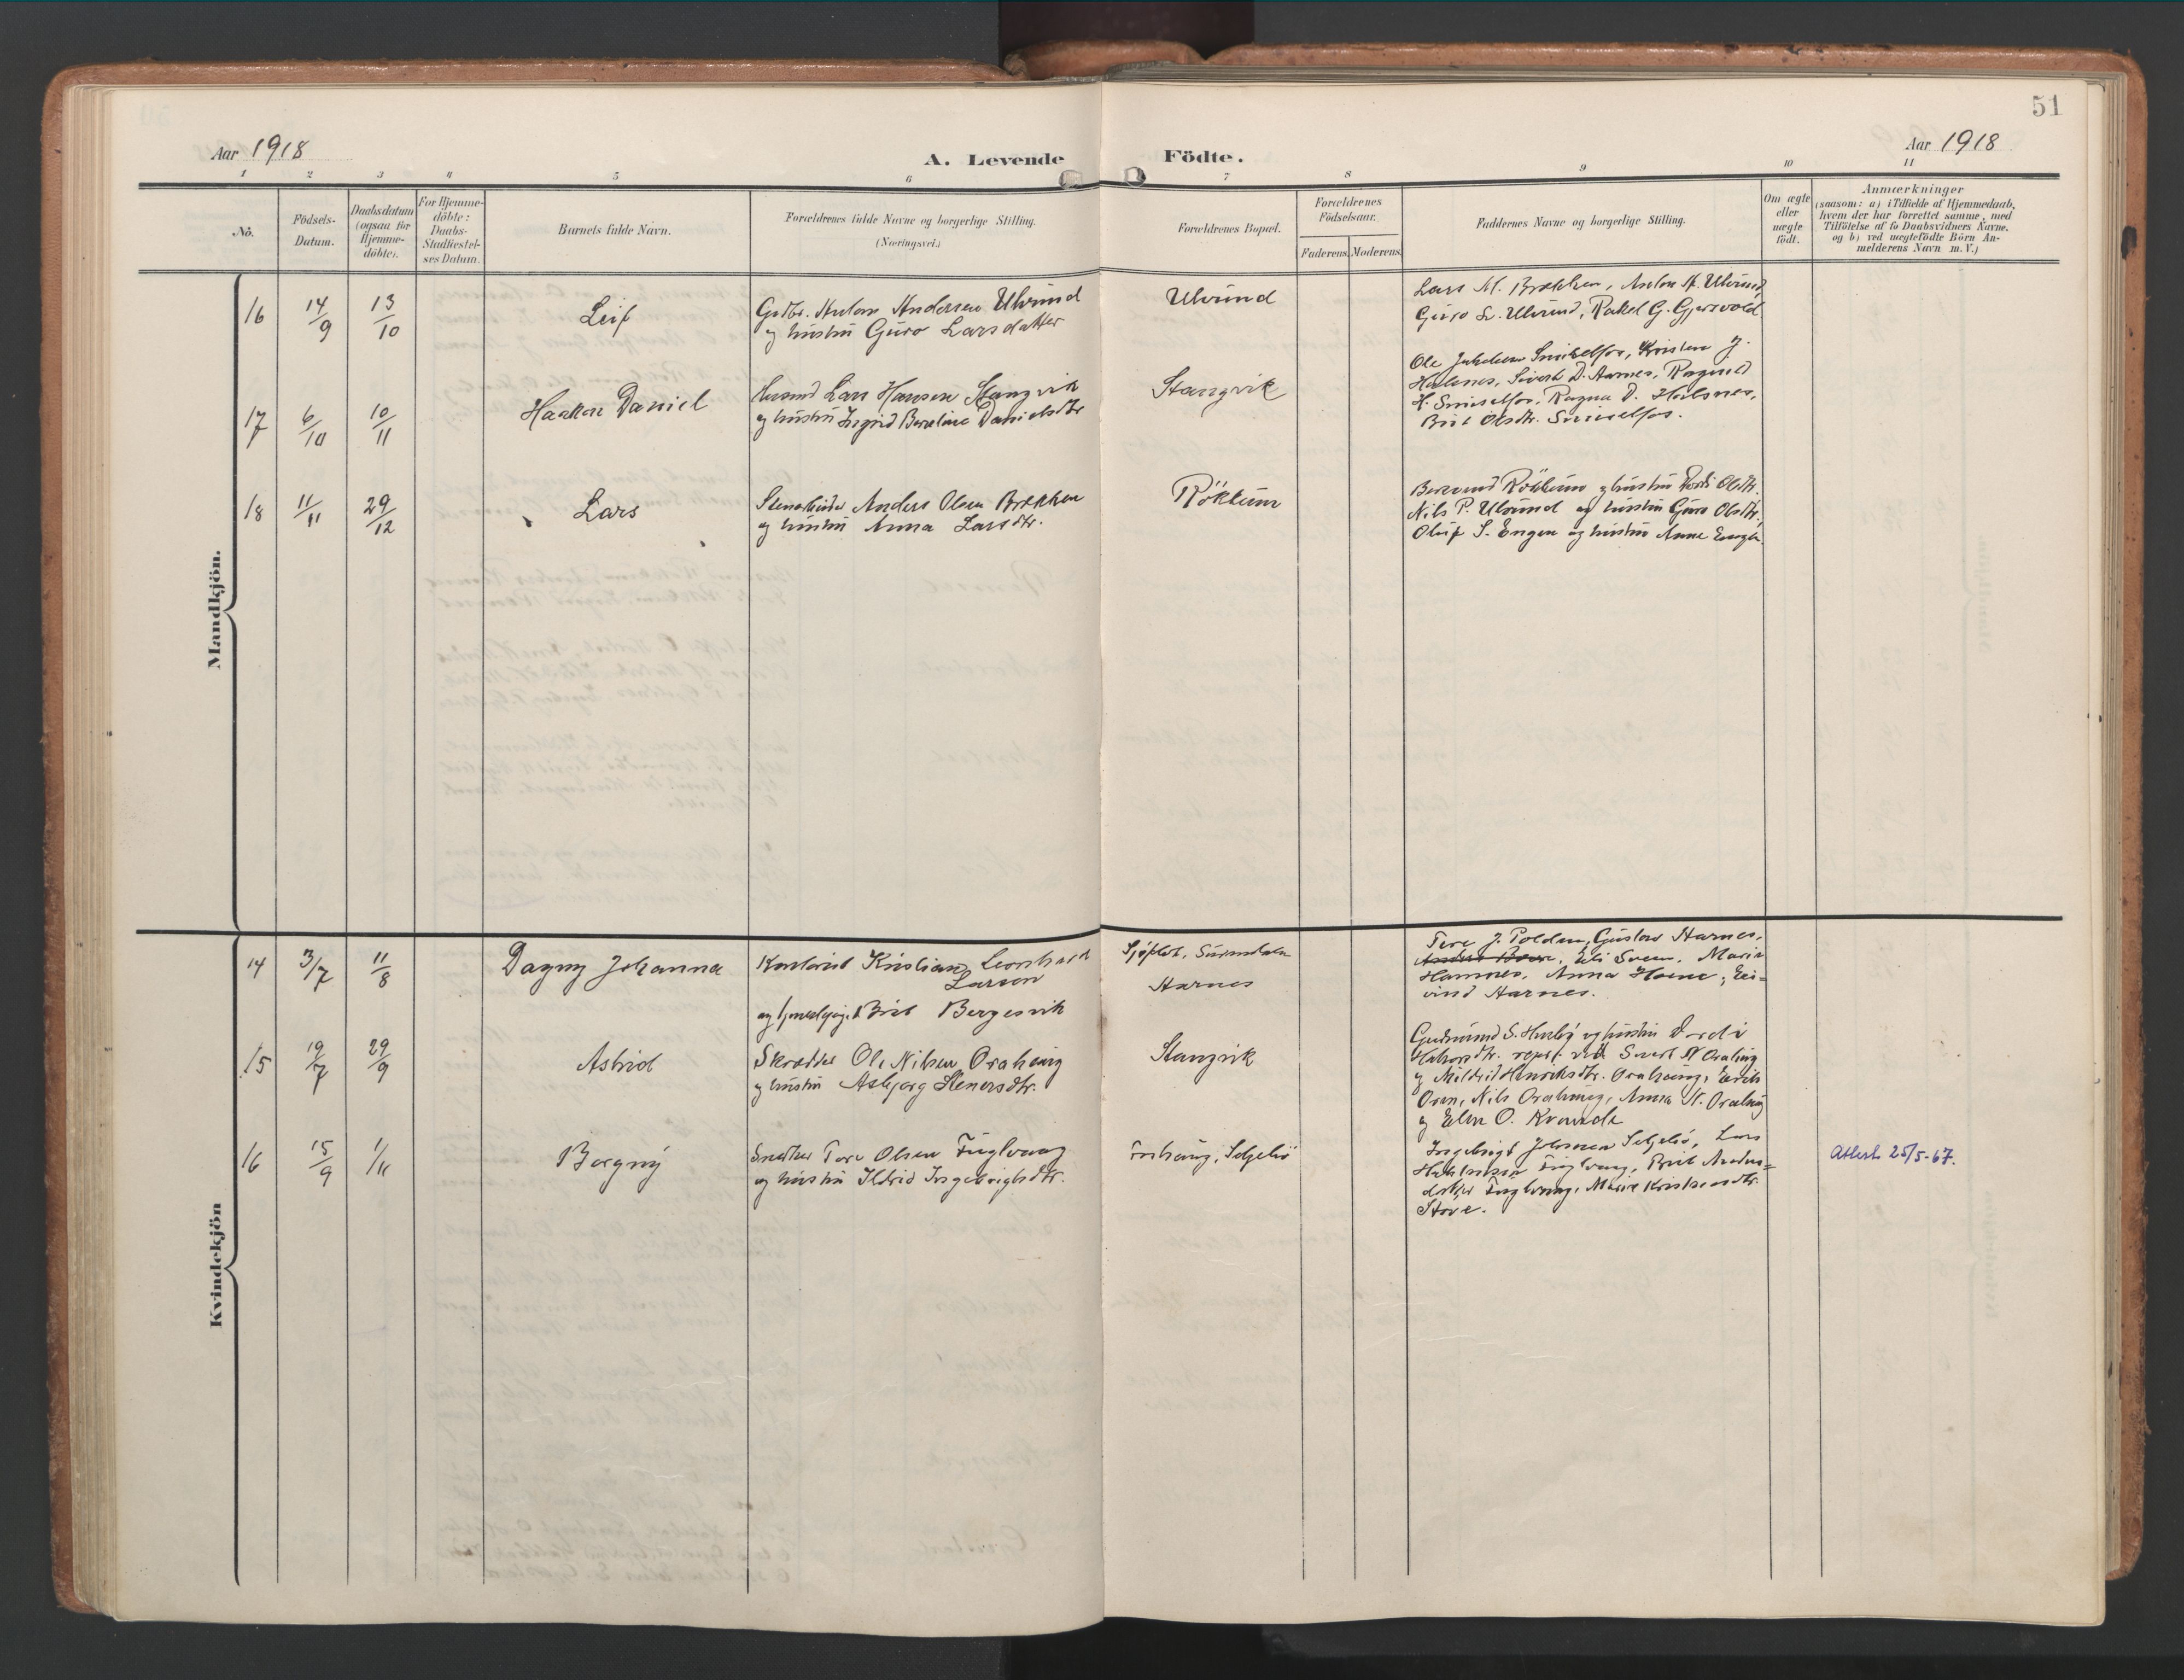 51
Aar 1918
A. Levende Födte.
Aar 1918
1 2 3 4 5 6 7 8 9 10 11
No.
Födsels-
Datum.
Daabsdatum
(ogsaa for
Hjemme-
döbte).
For Hjemme-
döbte:
Daabs-
Stadfæstel-
ses Datum.
Barnets fulde Navn.
Forældrenes fulde Navne og borgerlige Stilling.
(Næringsvei.)
Forældrenes Bopæl.
Forældrenes
Födselsaar.
Faderens. Moderens.
Faddernes Navne og borgerlige Stilling.
Om ægte
eller
uægte
födt.
Anmærkninger
(saasom: a) i Tilfælde af Hjemmedaab,
hvem der har forrettet samme, med
Tilföielse af to Daabsvidners Navne,
og b) ved uægtefödte Börn An-
melderens Navn m. V.)
Mandkjön.
16 14/9 13/10 Leif
Gdbr. Anton Andersen Ulvund
og hustru Guro Larsdatter
Ulvund
Lars M. Brekken, Anton A. Ulvund,
Guro L. Ulvund, Rakel G. Gjersvold
17 6/10 10/11 Haakon Daniel
Lars Hansen Stangvik
og hustru Ingrid Beretine Danielsdtr
Stangvik
Ole, Kristen J.
Holsnes, Sivert D. Aarnes, Ragnild
H., Ragna D. Holsnes,
Brit Olsdtr.
18 11/11 29/12 Lars
Anders Olsen Brekken
og hustru Anna Larsdtr.
Rökkum
Rökkum og hustru Dordi Olsdtr.
Nils P. Ulvund og hustru Guro Olsdtr.
Oluf S. Engen og hustru Anne Engen.
Kvindekjön
14 3/7 11/8 Dagny Johanna
Kristian Leonhard
Larsen
og Brit Bergesvik
Sjöflot, Surendalen
Aarnes
Tore J. Polden, Gustav Harnes,
Anders, Eli Sveen, Marie
Hamnes, Anna, Ei-
vind Harnes.
15 19/7 29/9 Astrid
Skrædder Ole Nilsen Orahaug
og hustru Asbjørg Stenersdtr.
Stangvik
Gudmund S. Husby og hustru Dordi
Hakonsdtr. repr. ved Sivert N. Orahaug
og Mildrid Henriksdtr. Orahaug, Erik
Oren, Nils Orahaug, Anna N. Orahaug
og Elen O. Kvande
16 15/9 1/11 Borgny
Snedker Tore Olsen Fuglvaag
og hustru Ildrid Ingebrigtsdtr.
Forhaug, Seljebö
Ingebrigt Johnsen Seljebö, Lars
Fuglvaag, Brit Anders=
datter Fuglvaag, Marie Kristensdtr.
Störe.
Attest 25/5-67.